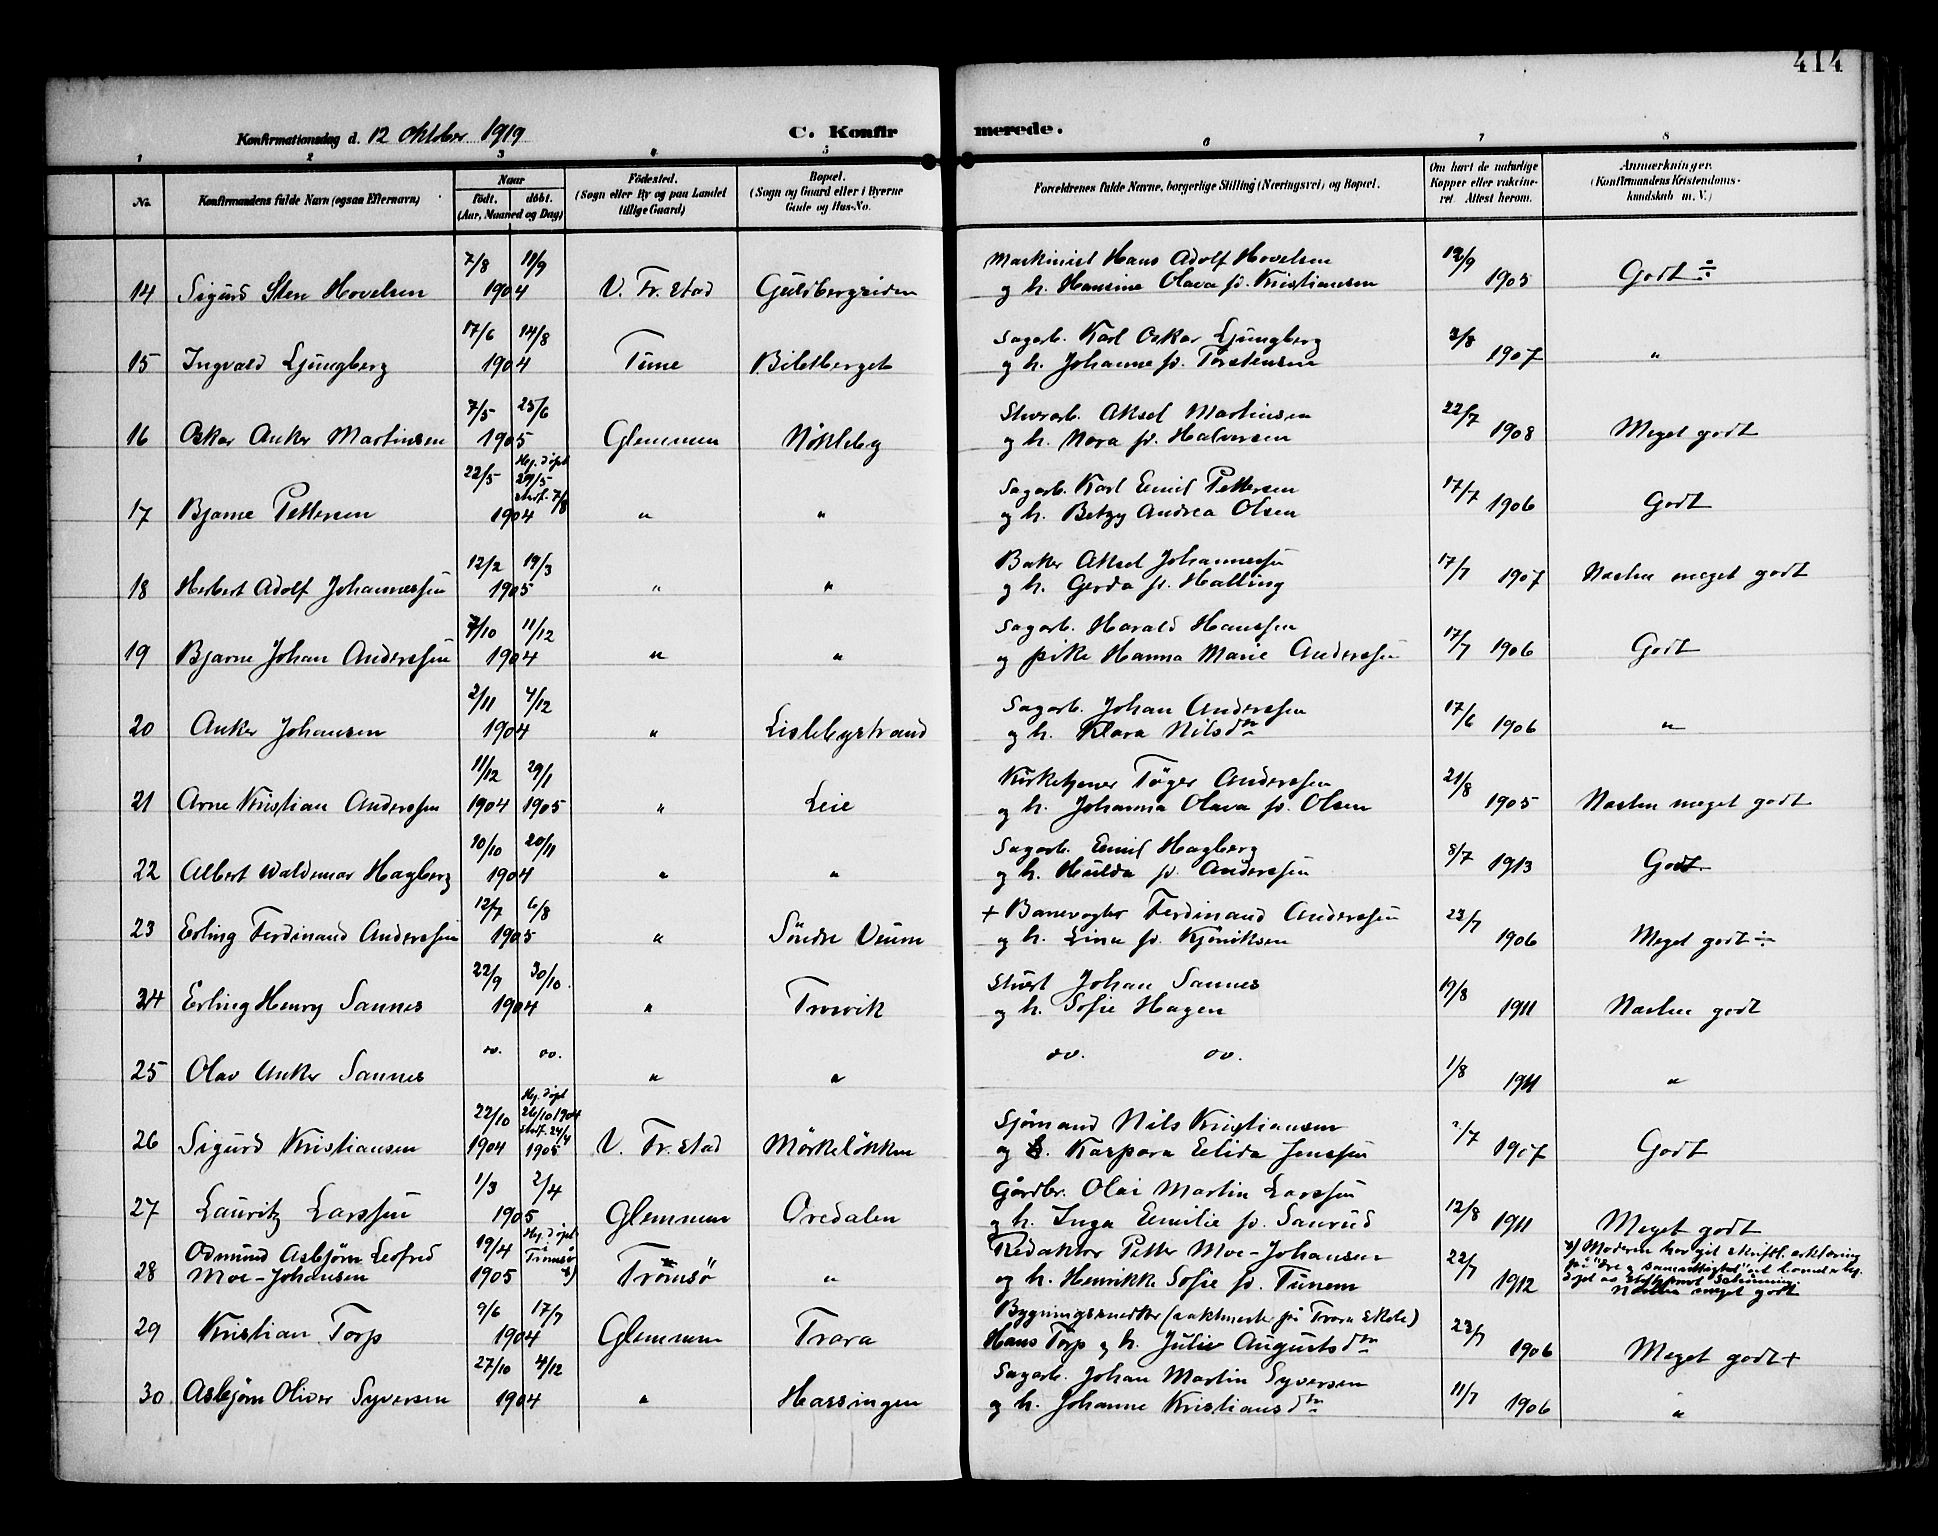 414
Konfirmationsdag d. 12 oktober 1919 C. Konfirmerede.
1 2 3 4 5 6 7 8
No. Konfirmandens fulde Navn (ogsaa Efternavn) Naar født. døbt. (Aar, Maaned og Dag) Fødested. (Sogn eller By og paa Landet tillige Gaard) Bopæl. (Sogn og Gaard eller i Byerne Gade og Hus-No. Forældrenes fulde Navne, borgerlige Stilling (Næringsvei) og Bopæl. Om havt de naturlige Kopper eller vaccineret. Attest herom. Anmærkninger. (Konfirmandens Kristendomskundskab m. V.)
7/8 11/9 Maskinist Hans Adolf Hovelsen 12/9
14 Sigurd Sten Hovelsen 1904 V. Fr.stad Guldbergsiden og h. Hansine Olava f. Kristiansen 1905 Godt ÷
17/6 14/8 Sagarb. Karl Oskar Ljungberg 2/8
15 Ingvald Ljungberg 1904 Tune Biletberget og h. Johanne f. Torstensen 1907 "
7/5 25/6 Stuerarb. Aksel Martinsen 22/7
16 Oskar Anker Martinsen 1905 Glemmen Nökleby og h. Nora f. Halvorsen 1908 Meget godt
22/5 Hj. döpt 29/5 stadf. 7/8 Sagarb. Karl Emil Pettersen 17/7
17 Bjarne Pettersen 1904 " " og h. Betzy Andrea Olsen 1906 Godt
12/2 19/3 Baker Aksel Johannessen 17/7
18 Herbert Adolf Johannessen 1905 " " og h. Gerda f. Halling 1907 Næsten meget godt
7/10 11/12 Sagarb. Harald Hanssen 17/7
19 Bjarne Johan Anderssen 1904 " " og pike Hanna Marie Anderssen 1906 Godt
2/11 4/12 Sagarb. Johan Anderssen 17/6
20 Anker Johansen 1904 " Lislebystrand og h. Klara Nilsdtr 1906 "
11/12 29/1 Kirketjener Töger Anderssen 21/8
21 Arne Kristian Anderssen 1904 1905 " Leie og h. Johanna Olava f. Olsen 1905 Næsten meget godt
10/10 20/11 Sagarb. Emil Hagberg 8/7
22 Albert Waldemar Hagberg 1904 " " og h. Hulda f. Anderssen 1913 Godt
12/7 6/8 + Banevogter Ferdinand Anderssen 23/7
23 Erling Ferdinand Anderssen 1905 " Söndre Veum og h. Lina f. Kjöniksen 1906 Meget godt ÷
22/9 30/10. Johan Sannes 19/8
24 Erling Henry Sannes 1904 " Trosvik og h. Sofie Hagen 1911 Næsten godt
do. do. do. do. 1/8
25 Olav Anker Sannes " " 1911 "
22/10 Hj. döpt 26/10 1904 stadf. 24/4 Sjömand Nils Kristiansen 2/7
26 Sigurd Kristiansen 1904 1905 V. Fr.stad Mörkelökken og h. Kaspara Elida Jenssen 1907 Godt
1/3 2/4 Gårdbr. Olai Martin Larssen 12/8
27 Lauritz Larssen 1905 Glemmen Oredalen og h. Inga Emilie f. Sanrud 1911 Meget godt
Odmund Asbjörn Leofred 19/4 Hj. döpt Tromsö Redaktör Petter Moe-Johansen 22/7 *) Moderen har git skriftl. erklæring på "ære og samvittighed" at han er hj.
28 Moe-Johansen 1905 *) Tromsö " og h. Henrikke Sofie f. Tunem 1912 döpt av Næsten meget godt
9/6 17/7 Bygningssnedker (vaktmester på Trara skole) 23/7
29 Kristian Torp 1904 Glemmen Trara Hans Torp og h. Julie Augustsdtr 1906 Meget godt +
27/10 4/12 Sagarb. Johan Martin Syversen 11/7
30 Asbjörn Oliver Syversen 1904 " Hassingen og h. Johanne Kristiansdtr 1906 "